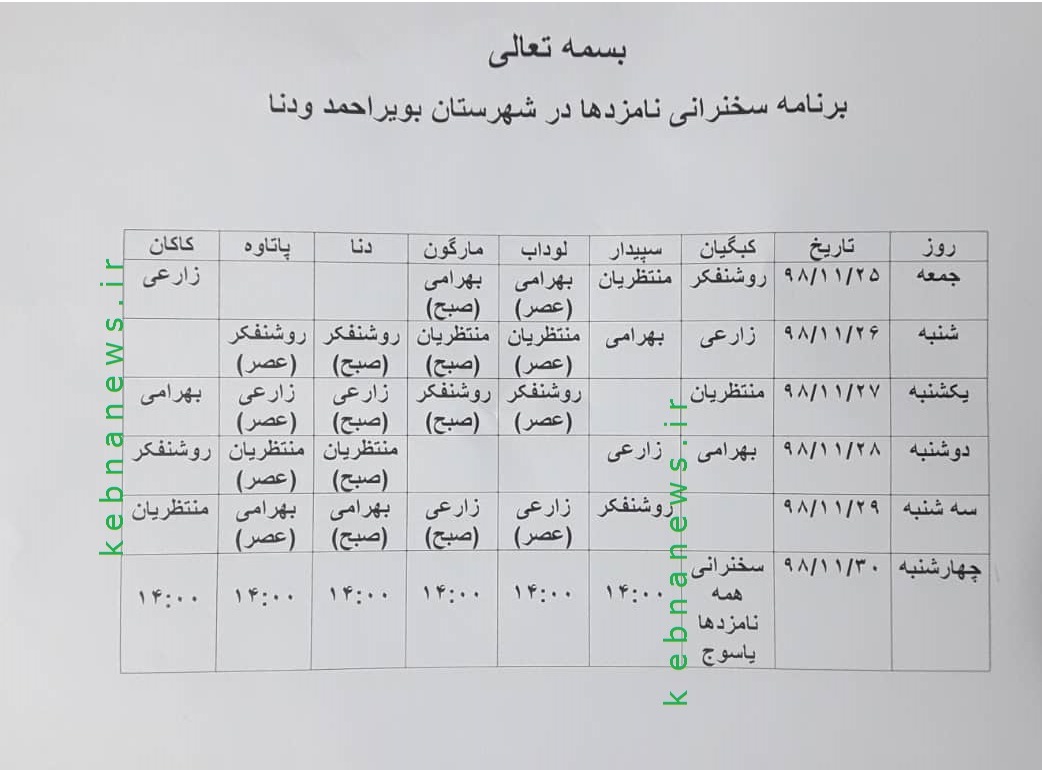 بسمه تعالی
برنامه سخنرانی نامزدها در شهرستان بویراحمد ودنا
روز تاریخ کبگیان سپیدار لوداب مارگون دنا پاتاوه کاکان
جمعه ۹۸/۱۱/۲۵ روشنفکر منتظریان بهرامی بهرامی زارعی
(عصر) (صبح)
شنبه ۹۸/۱۱/۲۶ زارعی بهرامی منتظریان منتظریان روشنفکر روشنفکر
(عصر) (صبح) (صبح) (عصر)
یکشنبه ۹۸/۱۱/۲۷ منتظریان روشنفکر روشنفکر زارعی زارعی بهرامی
(عصر) (صبح) (صبح) (عصر)
دوشنبه ۹۸/۱۱/۲۸ بهرامی زارعی منتظریان منتظریان روشنفکر
(صبح) (عصر)
سه شنبه ۹۸/۱۱/۲۹ روشنفکر زارعی زارعی بهرامی بهرامی منتظریان
(عصر) (صبح) (صبح) (عصر)
چهارشنبه ۹۸/۱۱/۳۰ سخنرانی
همه ۱۴:۰۰ ۱۴:۰۰ ۱۴:۰۰ ۱۴:۰۰ ۱۴:۰۰ ۱۴:۰۰
نامزدها
یاسوج
kebnanews.ir
kebnanews.ir